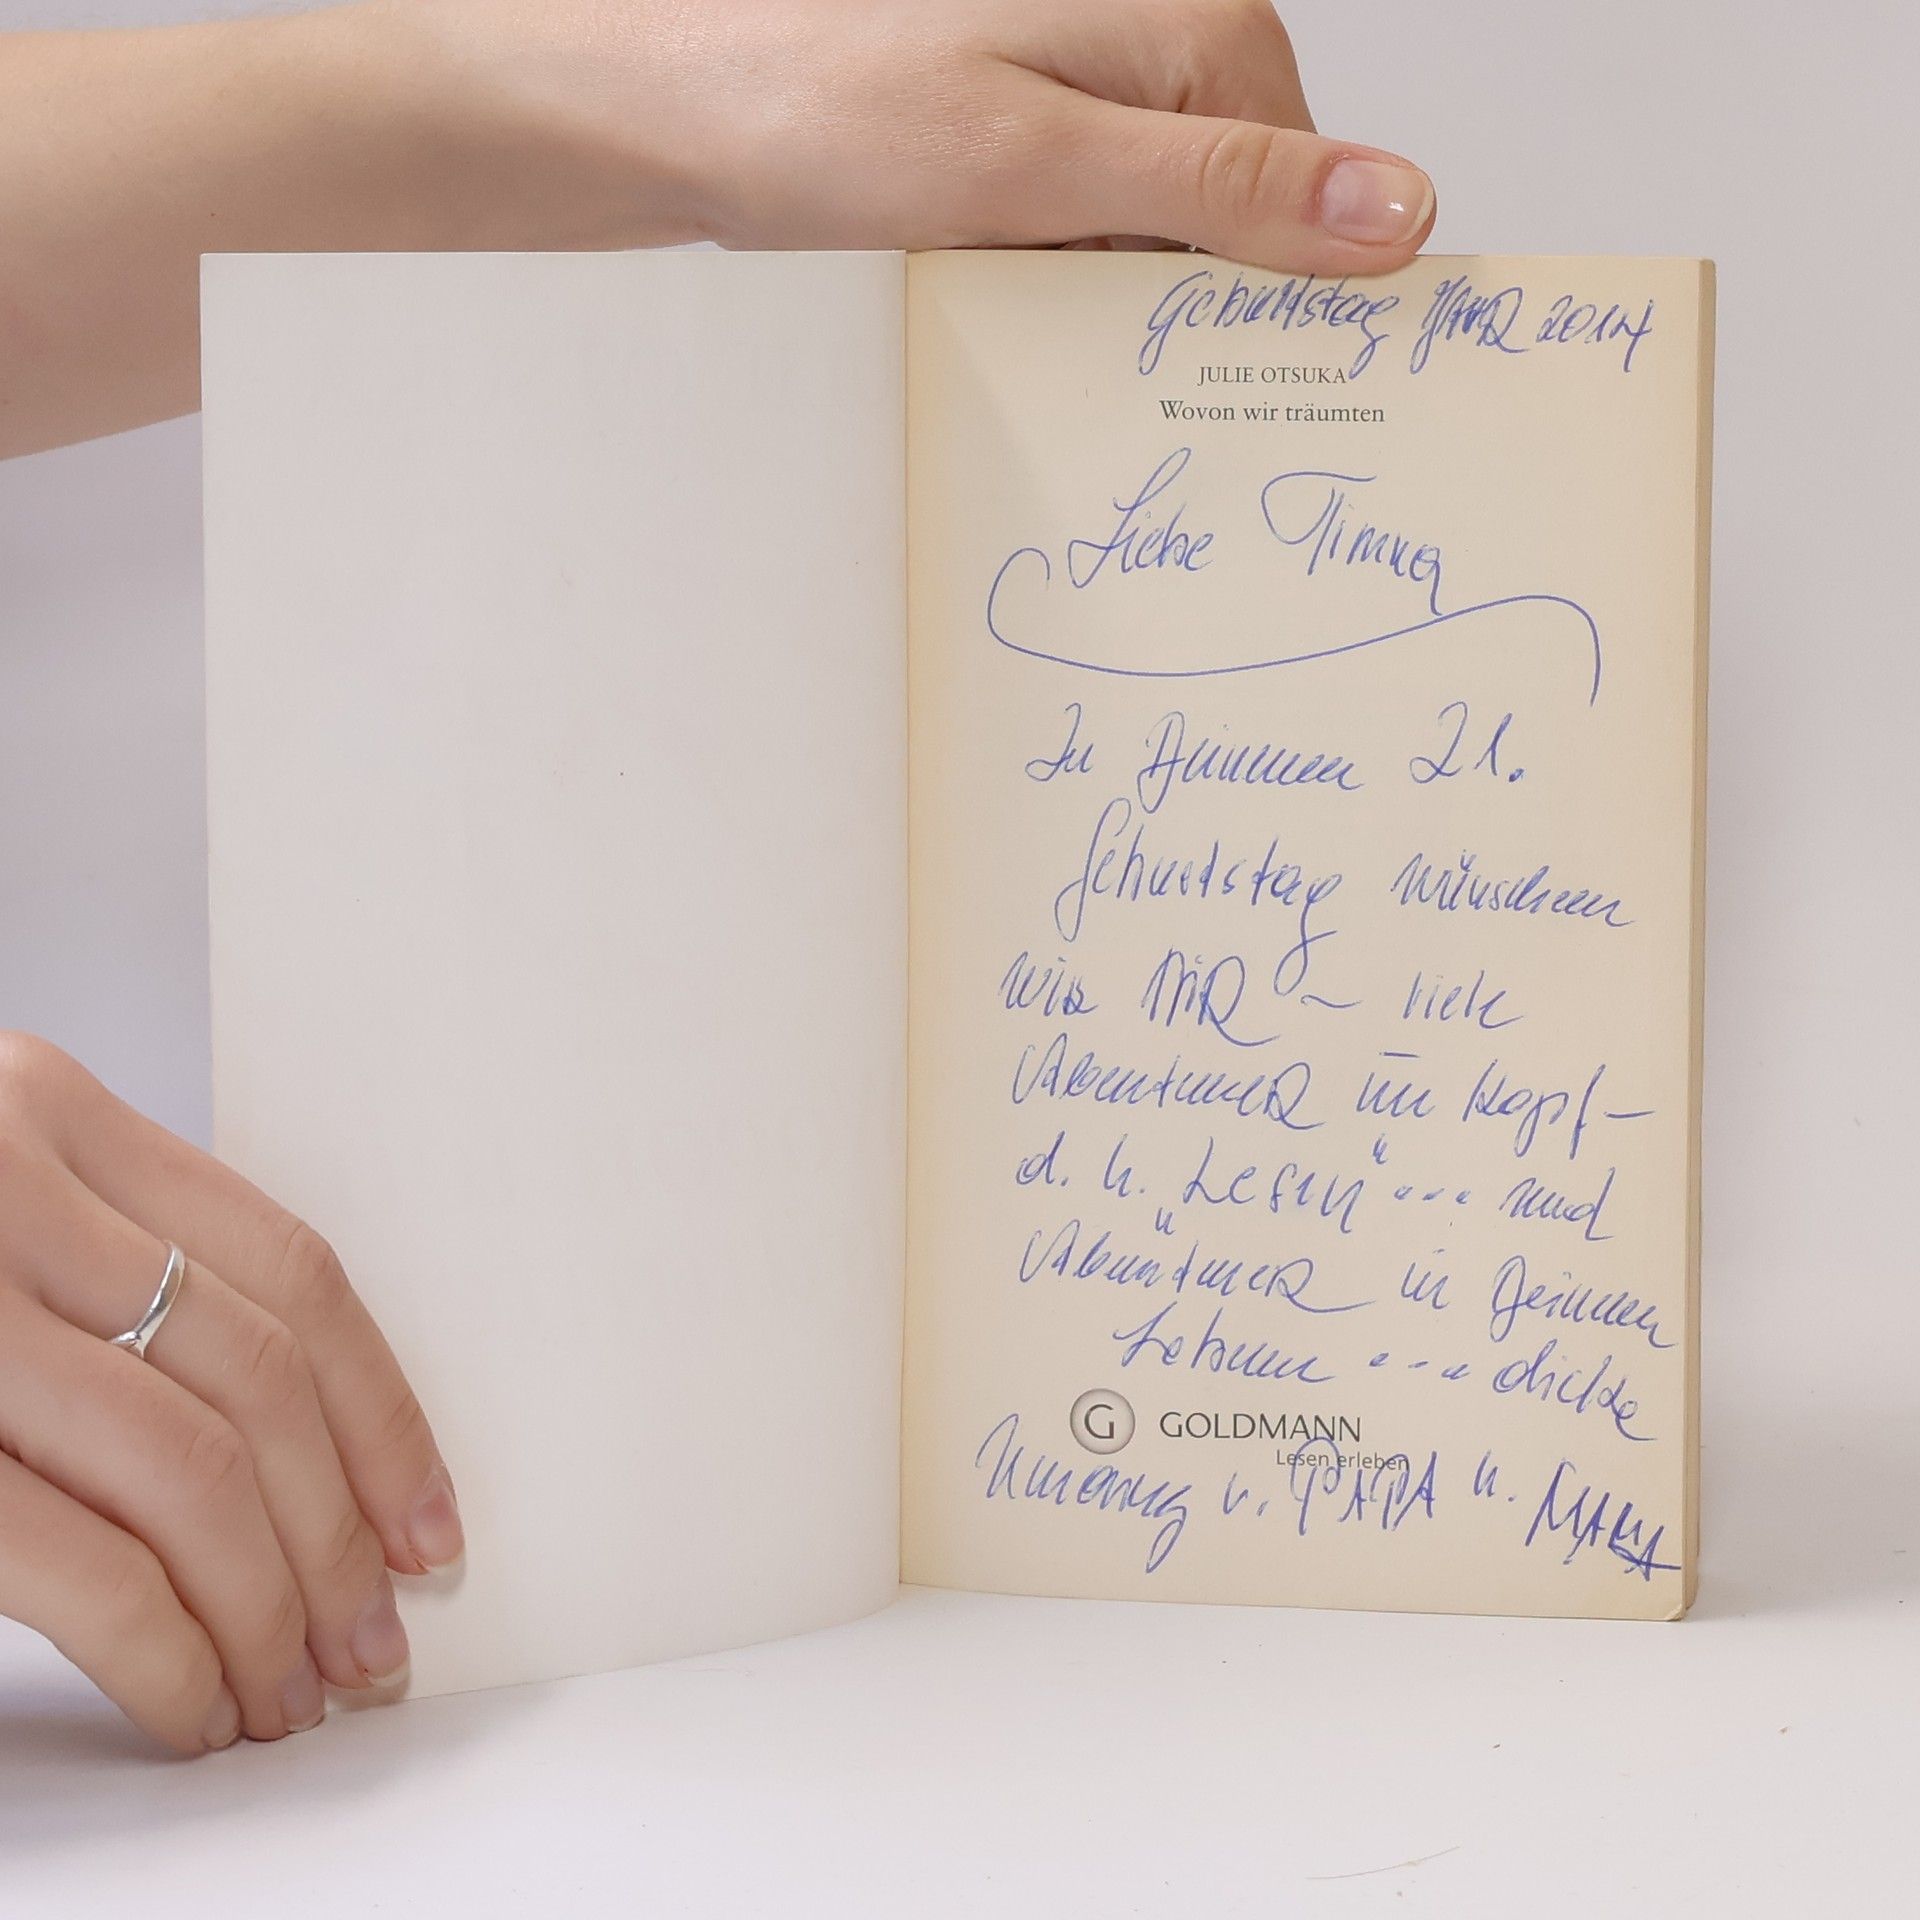 Geburtstag JAHR 2014
JULIE OTSUKA
Wovon wir träumten
Liebe Timna
Zu Deinem 21.
Geburtstag wünschen
wir DIR ~ viele
Abenteuer im Kopf –
d. h. „Lesen" --- und
Abenteuer in Deinem
Leben --- dicke
G GOLDMANN
Lesen erleben
Umarmung v. PAPA u. MAMA